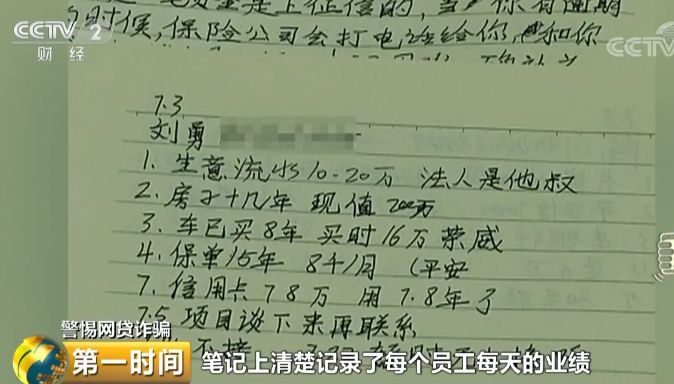 CCTV 2
财 经
CCTV
时候,保险公司会打电话给你,和你
7.3
刘勇
1. 生意流水10-20万 法人是他叔
2. 房子十几年 现值200万
3. 车已买8年 买时16万 荣威
4. 保单15年 8千/月 (平安
7. 信用卡 7 8万 用 7.8年了
7.5 项目谈下来再联系
警惕网贷诈骗
第一时间
笔记上清楚记录了每个员工每天的业绩